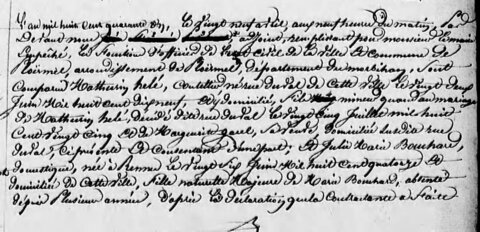 L'an mil huit cent quarante un, le Vingt neuf avril, aux neuf heures du matin, Par
Devant nous adjoint, remplissant pour monsieur le maire
Empêché, les fonctions d'officier de l'état Civil de la Ville et Commune de
Ploërmel, arrondissement de Ploërmel, département du morbihan, Sont
Comparus Mathurin helé, né rue du Val de Cette Ville le Vingt deux
Juin Mil huit cent dix neuf, et y domicilié, fils mineur quand au mariage
de Mathurin helé, décédé dite rue du Val le Vingt Cinq Juillet mil huit
Cent Vingt Cinq et de Marguerite garel, Sa Veuve, domiciliée susdite rue
du Val, Ci présente et Consentante d'une part; Et Julie Marie Bouchard,
domestique, née à Rennes le Vingt Six Juin Mil huit Cent quatorze et
domiciliée de Cette Ville, fille naturelle Majeure de Marie Bouchard, absente
depuis Plusieurs années, d'après les déclarations que la Contractante a faite